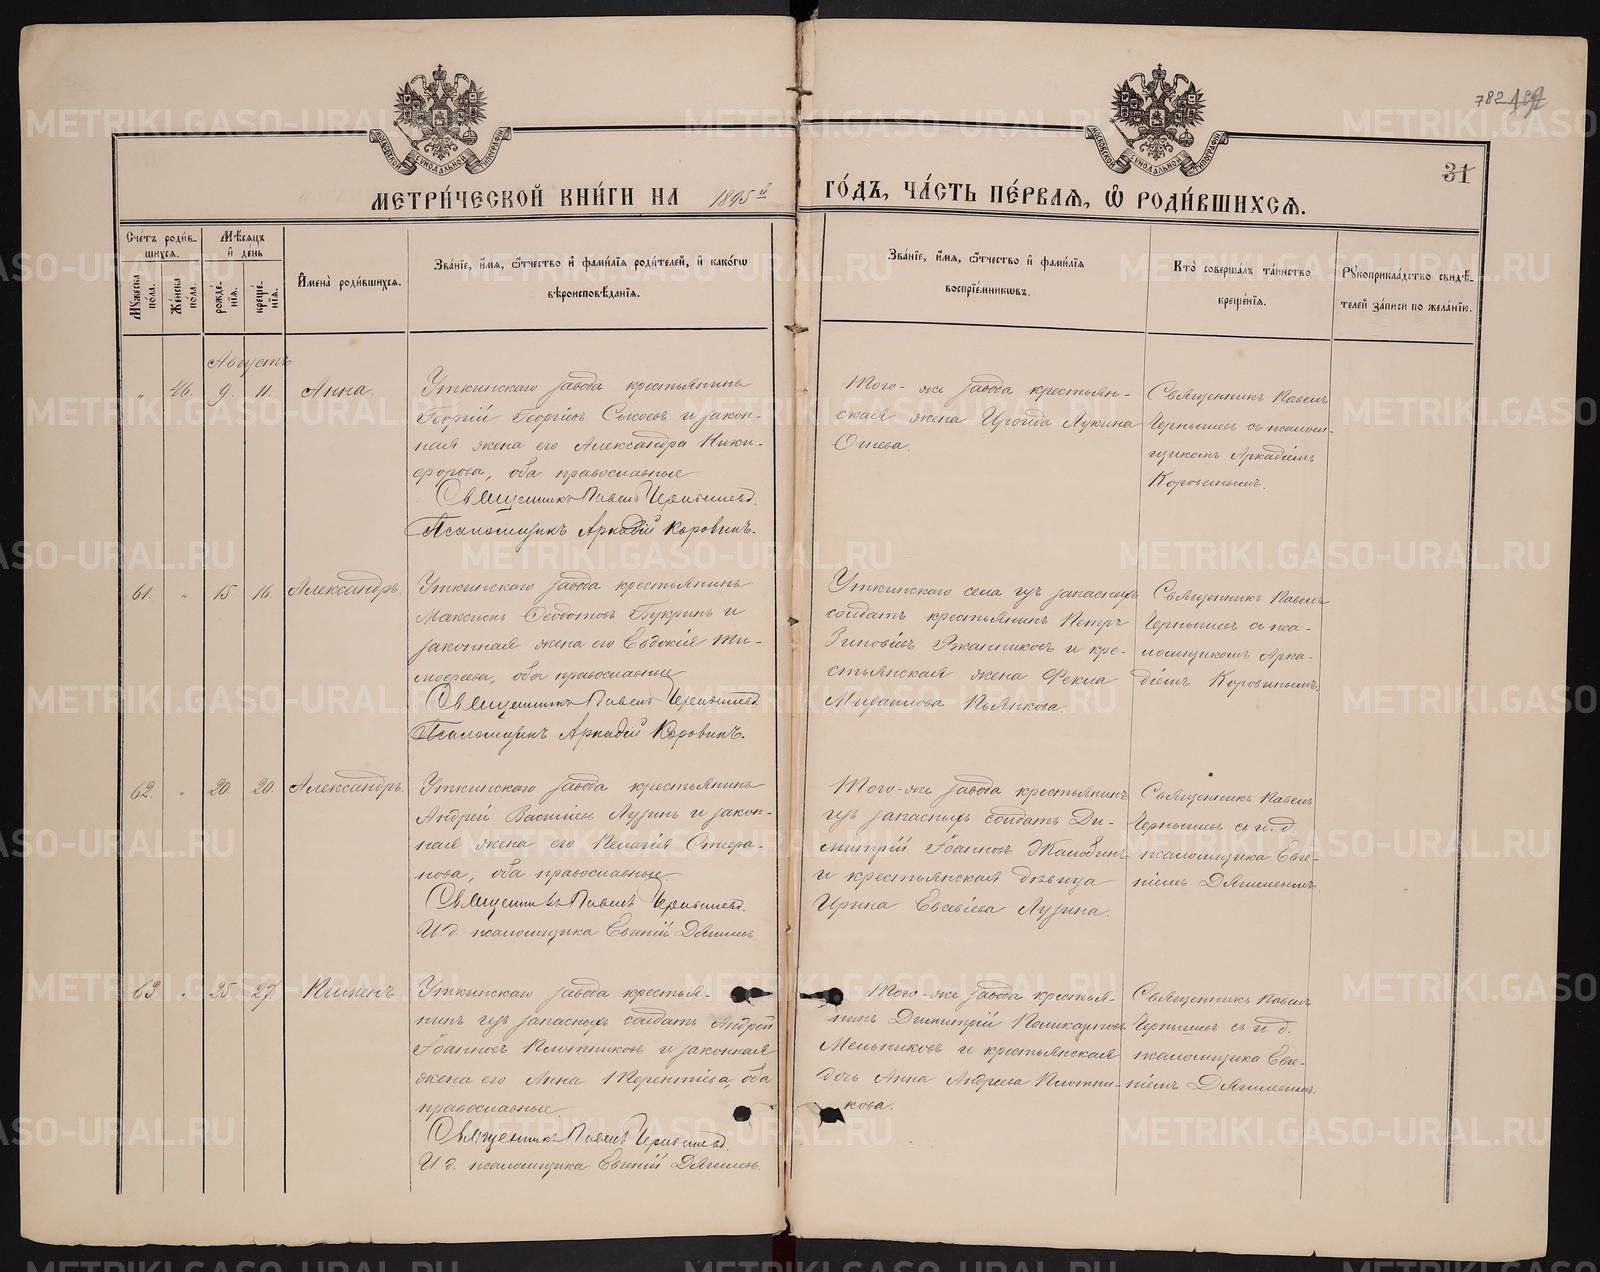 782
31
МЕТРИ́ЧЕСКОЙ КНИ́ГИ НА 1895й ГО́ДЪ, ЧА́СТЬ ПЕ́РВАЯ, Ѽ РОДИ́ВШИХСЯ.
Сче́тъ роди́в-
шихся.
Му́жеска по́ла.
Же́нска по́ла.
Мѣ́сяцъ
и҆ де́нь
рожде́-
нія.
креще́-
нія.
И҆мена̀ роди́вшихся.
Зва́ніе, и҆́мя, ѻ҆́тчество и҆ фами́лія роди́телей, и҆ како́гѡ
вѣроисповѣ́данія.
Зва́ніе, и҆́мя, ѻ҆́тчество и҆ фами́лія
воспріе́мниковъ.
Кто̀ соверша́лъ та́инство
креще́нія.
Рꙋкоприкла́дство свидѣ́-
телей за́писи по жела́нію.
Августъ
" 46. 9. 11. Анна.
Уткинскаго завода крестьянинъ
Георгій Георгіевъ Сысоевъ и закон-
ная жена его Александра Ники-
форова, оба православные
Священникъ Павелъ Чернышевъ.
Псаломщикъ Аркадій Коровинъ.
Того-же завода крестьян-
ская жена Ираида Лукина
Огнева.
Священникъ Павелъ
Чернышевъ съ псалом-
щикомъ Аркадіемъ
Коровинымъ.
61. " 15 16. Александръ.
Уткинскаго завода крестьянинъ
Максимъ Ѳеодотовъ Букринъ и
законная жена его Евдокія Ти-
моѳеева, оба православные
Священникъ Павелъ Чернышевъ.
Псаломщикъ Аркадій Коровинъ.
Уткинскаго села изъ запасныхъ
солдатъ крестьянинъ Петръ
Зиновіевъ Ржанниковъ и кре-
стьянская жена Ѳекла
Михаилова Пьянкова.
Священникъ Павелъ
Чернышевъ съ пса-
ломщикомъ Арка-
діемъ Коровинымъ.
62. " 20. 20. Александръ.
Уткинскаго завода крестьянинъ
Андрей Василіевъ Лузинъ и закон-
ная жена его Пелагія Стефа-
нова, оба православные
Священникъ Павелъ Чернышевъ.
И. д. псаломщика Евгеній Дягилевъ.
Того-же завода крестьянинъ
изъ запасныхъ солдатъ Ди-
митрій Іоанновъ Жалобинъ
и крестьянская дѣвица
Ирина Евсевіева Лузина.
Священникъ Павелъ
Чернышевъ съ и. д.
псаломщика Евге-
ніемъ Дягилевымъ.
63. " 25. 27. Пименъ.
Уткинскаго завода крестья-
нинъ изъ запасныхъ солдатъ Андрей
Іоанновъ Плотниковъ и законная
жена его Анна Терентіева, оба
православные.
Священникъ Павелъ Чернышевъ.
И. д. псаломщика Евгеній Дягилевъ.
Того-же завода крестья-
нинъ Димитрій Поликарповъ
Мельниковъ и крестьянская
дочь Анна Андреева Плотни-
кова.
Священникъ Павелъ
Чернышевъ съ и. д.
псаломщика Евге-
ніемъ Дягилевымъ.
METRIKI.GASO-URAL.RU